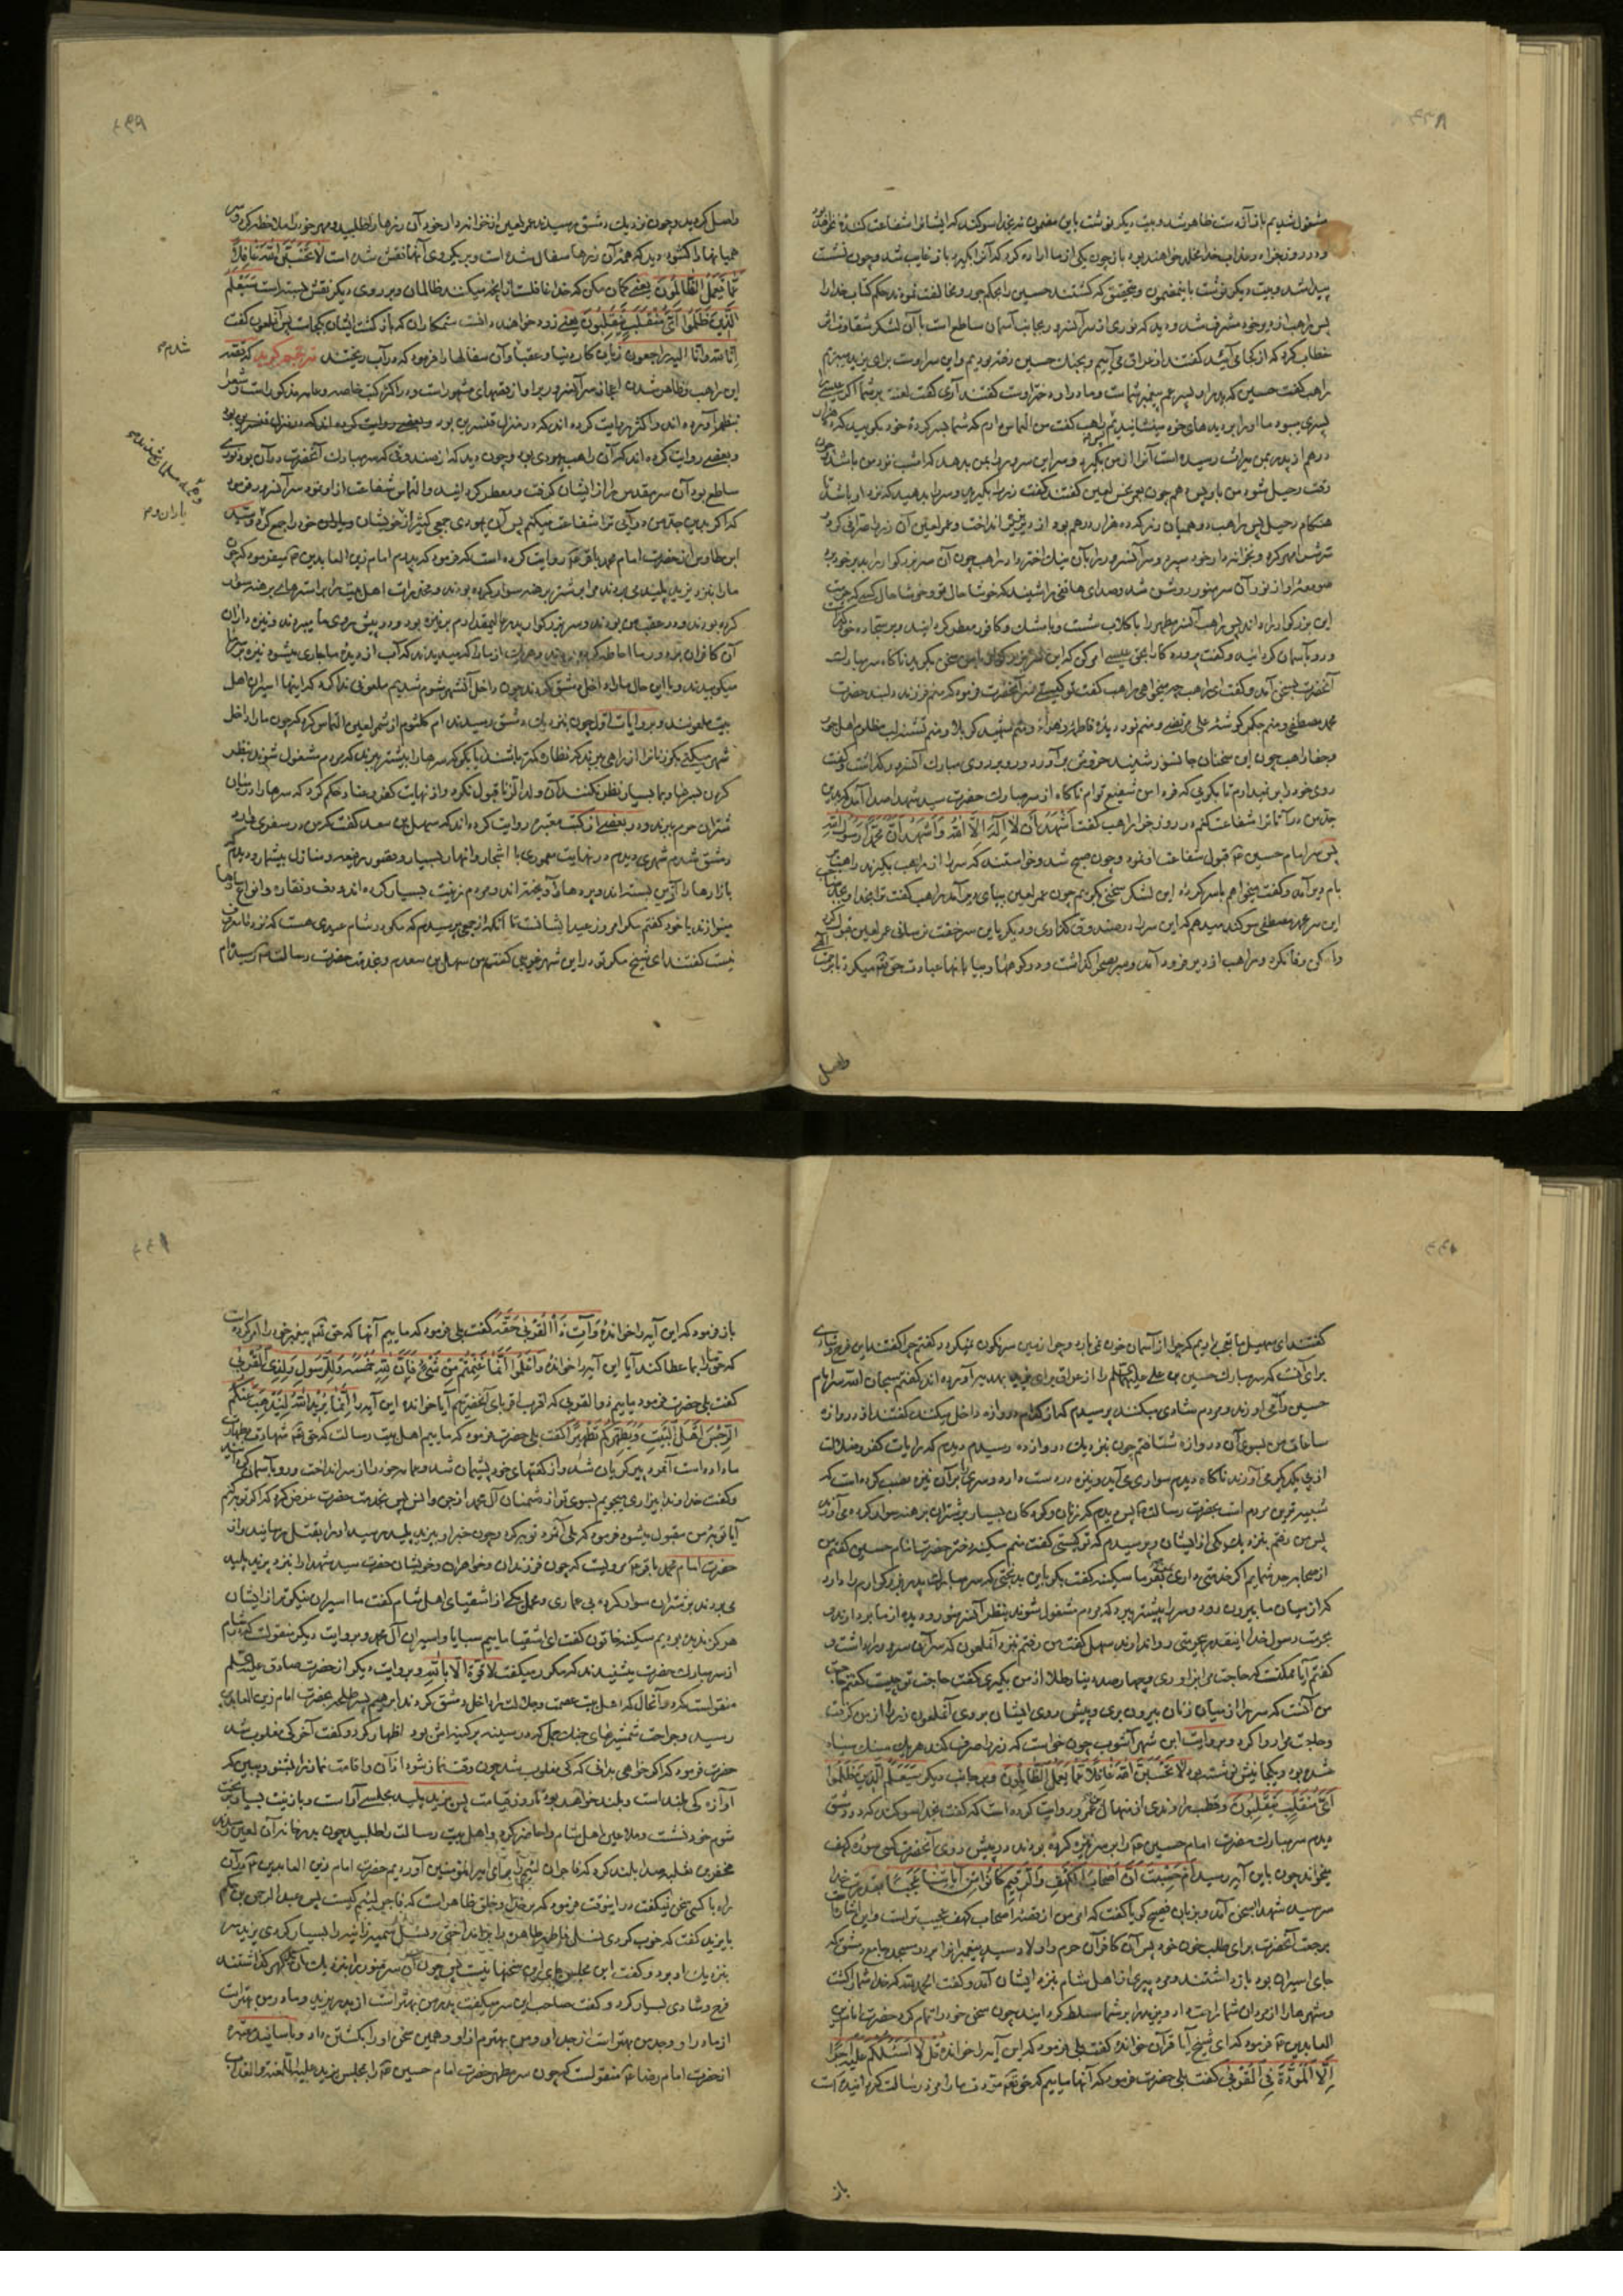 مشغول شدیم باز آن دست ظاهر شد و بیت دیگر نوشت باین مضمون که بخدا سوگند که ایشانرا شفاعت کننده نخواهد بود
و در روز جزا در عذاب خدا مخلد خواهند بود باز چون یکی از ما اراده کرد که آنرا بگیرد باز غایب شد و چون نشست
پیدا شد و بیت دیگر نوشت باین مضمون و بتحقیق که کشتند حسین را بحکم جور و مخالفت نمودند حکم کتاب خدا را
پس راهب از دیر خود مشرف شد و دید که نوری از سر آنسرور بجانب آسمان ساطع است با آن لشکر شقاوت اثر
خطاب کرد که از کجا می آئید گفتند از عراق می آییم و بجنگ حسین رفته بودیم و این سر اوست برای یزید میبریم
راهب گفت حسین که پدر او پسر عم پیغمبر شماست و مادر او دختر اوست گفتند آری گفت لعنت بر شما اگر عیسی را
پسری میبود ما او را بر دیده های خود مینشانیدیم پس راهب گفت من التماسی دارم که شما بسرکرده خود بگویید که ده هزار
درهم از پدر بمن میراث رسیده است آنرا از من بگیرد و سر این سرور را بمن بدهد که امشب نزد من باشد و چون
وقت رحیل شود من باو پس دهم چون بعمر نحس لعین گفتند گفت زر را بگیرید و سر را بدهید که نزد او باشد تا
هنگام رحیل پس راهب دو همیان زر که ده هزار درهم بود از دیر بزیر انداخت و عمر لعین آن زر را صرافی کرد و در
ترش مهر کرد و بخزانه دار خود سپرد و سر آنسرور را بآن نیک اختر داد راهب چون آن سر بزرگوار را بدیر خود برد
صومعه او از نور آن سر منور روشن شد و صدای هاتفی را شنید که خوشا حال تو و خوشا حال کسی که حرمت
این بزرگوار را داند پس راهب آنسر مطهر را با گلاب شست و با مشک و کافور معطر گردانید و بر سجاده خود گذاشت
و رو بآسمان گردانید و گفت پروردگارا بحق عیسی امر کن که این سر بزرگوار با من سخن بگوید ناگاه سر مبارک
آنحضرت بسخن آمد و گفت ای راهب چه میخواهی راهب گفت تو کیستی سر آنحضرت فرمود که منم فرزند دلبند حضرت
محمد مصطفی و منم جگر گوشه علی مرتضی و منم نور دیده فاطمه زهرا و منم شهید کربلا و منم تشنه لب مظلوم اهل جور
و جفا راهب چون این سخنان جانسوز شنید خروش برآورد و رو بر روی مبارک آنسرور گذاشت و گفت
روی خود را بر نمیدارم تا بگویی که فردا من شفیع توام ناگاه از سر مبارک حضرت سید شهدا صدا آمد که بدین
جد من درآ تا ترا شفاعت کنم در روز جزا راهب گفت اَشْهَدُ اَنْ لا اِلهَ اِلاَّ اللهُ وَ اَشْهَدُ اَنَّ مُحَمَّداً رَسُولُ اللهِ
پس سر امام حسین ع قبول شفاعت او نمود و چون صبح شد و خواستند که سر را از راهب بگیرند راهب بر
بام دیر آمد و گفت میخواهم با سرکرده این لشکر سخنی گویم چون عمر لعین بپای دیر آمد راهب گفت ترا بخدا و بجد
این سر محمد مصطفی سوگند میدهم که این سر را در صندوق گذاری و دیگر باین سر خفت نرسانی عمر لعین قبول کرد
و لکن وفا نکرد و راهب از دیر فرود آمد و سر بصحرا گذاشت و در کوهها و بیابانها عبادت حق تعالی میکرد تا برحمت الهی
واصل
واصل گردید و چون نزدیک دمشق رسیدند عمر لعین از خزانه دار خود آن زرها را طلبید و مهر خود را ملاحظه کرد و سر
همیانها را گشود دید که همه آن زرها سفال شده است و بر یکروی آنها نقش شده است لا تَحْسَبَنَّ اللهَ غافِلاً
عَمّا یَعْمَلُ الظّالِمُونَ یعنی گمان مکن که خدا غافلست از آنچه میکنند ظالمان و بر روی دیگر نقش بسته است سَیَعْلَمُ
الَّذینَ ظَلَمُوا اَیَّ مُنْقَلَبٍ یَنْقَلِبُونَ یعنی زود خواهند دانست ستمکاران که بازگشت ایشان بکجاست پس آنملعون گفت
انا لله و انا الیه راجعون زیان کار دنیا و عقبا و آن سفالها را فرمود که در آب ریختند مترجم گوید که قصه
این راهب و ظاهر شدن اعجاز سر آنسرور بر او از قصهای مشهور است و در اکثر کتب خاصه و عامه مذکور است و شعرا
بنظم آورده اند و اکثر روایت کرده اند که در منزل قنسرین بود
و بعضی روایت کرده اند که آن راهب یهودی بود و چون دید که از صندوقی که سر مبارک آنحضرت در آن بود نوری
ساطع بود آن سر مقدس را از ایشان گرفت و معطر گردانید و التماس شفاعت از او نمود سر آنسرور فرمود
که اگر بدین جد من درآیی ترا شفاعت میکنم پس آن یهودی جمعی کثیر از خویشان و یاران خود را جمع کرد و سید
ابن طاوس از حضرت امام محمد باقر ع روایت کرده است که فرمود که پدرم امام زین العابدین ع میفرمود که چون
ما را بنزد یزید پلید میبردند مرا بر شتر برهنه سوار کرده بودند و مخدرات اهل بیت را بر استرهای برهنه سوار
کرده بودند و در عقب من بودند و سر بزرگوار پدر عالیمقدارم بر نیزه بود و در پیش روی ما میبردند و نیزه داران
آن کافران بر دور ما احاطه کرده بودند و هر یک از ما را که میدیدند که آب از دیده ما جاری میشود نیزه بر سر ما
میکوبیدند و با این حال ما را داخل دمشق کردند چون داخل آنشهر شوم شدیم ملعونی ندا کرد که اینها اسیران اهل
بیت ملعونند و بروایات اول چون بنزدیک دمشق رسیدند ام کلثوم از شمر لعین التماس کرد که چون ما را داخل
شهر میکنی بگو زنانرا از راهی ببرند که نظاره کنندگان کمتر باشند یا بگو که سرها را پیشتر ببرند که مردم مشغول شوند بنظر
کردن سرها و بما بسیار نظر نکنند آن ولد الزنا قبول نکرد و از نهایت کفر و عناد حکم کرد که سرها را در میان
شتران حرم ببرند و در بعضی از کتب معتبره روایت کرده اند که سهل بن سعد گفت که من در سفری وارد
دمشق شدم شهری دیدم در نهایت معموری با اشجار و انهار بسیار و قصور رفیعه و منازل بیشمار و دیدم که
بازارها را آئین بسته اند و پرده ها آویخته اند و مردم زینت بسیار کرده اند و دف و نقاره و انواع سازها
مینوازند با خود گفتم مگر امروز عید ایشانست تا آنکه از جمعی پرسیدم که مگر در شام عیدی هست که نزد ما معروف
نیست گفتند ای شیخ مگر تو در این شهر غریبی گفتم من سهل بن سعدم و بخدمت حضرت رسالت ع رسیده ام
شدم ص
و همه مسلمان شدند ص
یاران و ص
گفتند ای سهل ما تعجب داریم که چرا از آسمان خون نمی بارد و چرا زمین سرنگون نمیگردد گفتم چرا گفتند این فرح و شادی
برای آنست که سر مبارک حسین بن علی علیهما السلم را از عراق برای یزید بهدیه آورده اند گفتم سبحان الله سر امام
حسین را می آورند و مردم شادی میکنند پرسیدم که از کدام دروازه داخل میکنند گفتند از دروازه
ساعات من بسوی آن دروازه شتافتم چون بنزدیک دروازه رسیدم دیدم که رایات کفر و ضلالت
از پی یکدیگر می آورند ناگاه دیدم سواری می آید و نیزه در دست دارد و سری را بر آن نیزه نصب کرده است که
شبیه ترین مردم است بحضرت رسالت ع پس دیدم که زنان و کودکان بسیار بر شتران برهنه سوار کرده می آورند
پس من رفتم بنزدیک یکی از ایشان و پرسیدم که تو کیستی گفت منم سکینه دختر حضرت امام حسین گفتم من
از صحابه جد شمایم اگر خدمتی داری بفرما سکینه گفت بگو باین بدبختی که سر مبارک پدر بزرگوارم را دارد
که از میان ما بیرون رود و سر را پیشتر ببرد که مردم مشغول شوند بنظر آنسر منور و دیده از ما بردارند و
بحرمت رسول خدا اینقدر بیحرمتی روا ندارند سهل گفت من رفتم بنزد آنملعون که سر آن سرور را داشت و
گفتم آیا ممکنست که حاجت مرا برآوری و چهارصد دینار طلا از من بگیری گفت حاجت تو چیست گفتم حاجت
من آنست که سر را از میان زنان بیرون بری و پیش روی ایشان بروی آنملعون زر را از من گرفت
و حاجت مرا روا کرد و بروایت ابن شهر آشوب چون خواست که زر را صرف کند هر یک سنگ سیاه
شده بود و بر یکجانبش نوشته بود لا تَحْسَبَنَّ اللهَ غافِلاً عَمّا یَعْمَلُ الظّالِمُونَ و بر جانب دیگر سَیَعْلَمُ الَّذینَ ظَلَمُوا
اَیَّ مُنْقَلَبٍ یَنْقَلِبُونَ و قطب راوندی از منهال بن عمرو روایت کرده است که گفت بخدا سوگند که در دمشق
دیدم سر مبارک حضرت امام حسین ع را بر سر نیزه کرده بودند و در پیش روی آنحضرت کسی سوره کهف
میخواند چون باین آیه رسید اَمْ حَسِبْتَ اَنَّ اَصْحابَ الْکَهْفِ وَ الرَّقیمِ کانُوا مِنْ آیاتِنا عَجَباً بقدرت خدا
سر سید شهدا بسخن آمد و بزبان فصیح گویا گفت که امر من از قصه اصحاب کهف عجیب تر است و این اشاره است
برجعت آنحضرت برای طلب خون خود پس آن کافران حرم و اولاد سید پیغمبران را در مسجد جامع دمشق که
جای اسیران بود بازداشتند و مرد پیری از اهل شام بنزد ایشان آمد و گفت الحمد لله که خدا شما را کشت
و شهرها را از مردان شما راحت داد و یزید را بر شما مسلط گردانید چون سخن خود را تمام کرد حضرت امام زین
العابدین ع فرمود که ای شیخ آیا قرآن خوانده گفت بلی فرمود که این آیه را خوانده قُلْ لا اَسْئَلُکُمْ عَلَیْهِ اَجْراً
اِلاَّ الْمَوَدَّةَ فِی الْقُرْبی گفت بلی حضرت فرمود که آنها ماییم که حق تع مودت ما را مزد رسالت گردانیده است
باز
باز فرمود که این آیه را خوانده وَآتِ ذَا الْقُرْبی حَقَّهُ گفت بلی فرمود که ماییم آنها که حق تع پیغمبر خود را امر کرده است
که حق ما را بما عطا کند آیا این آیه را خوانده وَاعْلَمُوا اَنَّما غَنِمْتُمْ مِنْ شَیْءٍ فَاَنَّ لِلّهِ خُمُسَهُ وَ لِلرَّسُولِ وَ لِذِی الْقُرْبی
گفت بلی حضرت فرمود ماییم ذو القربی که اقرب اقربای آنحضرتیم آیا خوانده این آیه را اِنَّما یُریدُ اللهُ لِیُذْهِبَ عَنْکُمُ
الرِّجْسَ اَهْلَ الْبَیْتِ وَ یُطَهِّرَکُمْ تَطْهیراً گفت بلی حضرت فرمود که ماییم اهل بیت رسالت که حق تع شهادت بطهارت
ما داده است آنمرد پیر گریان شد و از گفتهای خود پشیمان شد و عمامه خود را از سر انداخت و رو بآسمان گردانید
و گفت خداوندا بیزاری میجویم بسوی تو از دشمنان آل محمد از جن و انس پس بخدمت حضرت عرض کرد که اگر توبه کنم
آیا توبه من مقبول میشود فرمود که بلی آنمرد توبه کرد و چون خبر او بیزید پلید رسید او را بقتل رسانید و از
حضرت امام محمد باقر ع مرویست که چون فرزندان و خواهران و خویشان حضرت سید شهدا را بنزد یزید پلید
می بردند بر شتران سوار کرده بی عماری و محمل یکی از اشقیای اهل شام گفت ما اسیران نیکوتر از ایشان
هرگز ندیده بودیم سکینه خاتون گفت ای اشقیا ماییم سبایا و اسیران آل محمد و بروایت دیگر منقولست که تمام
از سر مبارک حضرت میشنیدند که مکرر میگفت لا قُوَّةَ اِلاَّ بِاللهِ و بروایت دیگر از حضرت صادق علیه السلم
منقولست که در آنحال که اهل بیت عصمت و جلالت را داخل دمشق کردند ابرهیم پسر طلحه بحضرت امام زین العابدین
رسید و جراحت شمشیرهای جنگ جمل که در سینه پر کینه اش بود اظهار کرد و گفت آخر کی مغلوب شد
حضرت فرمود که اگر خواهی بدانی که کی مغلوب شد چون وقت نماز شود اذان و اقامت نماز را بشنو و ببین که
آوازه کی بلند است و بلند خواهد بود تا روز قیامت پس یزید پلید مجلسی آراست و با زینت بسیار بر تخت
شوم خود نشست و ملاعین اهل شام را حاضر کرد و اهل بیت رسالت را طلبید چون بدر خانه آن لعین رسیدند
محفر بن ثعلبه صدا بلند کرد که فاجران لئیم را برای امیر المؤمنین آوردیم حضرت امام زین العابدین ع که در آن
راه با کسی سخن نمیگفت در اینوقت فرمود که بر خدا و خلق ظاهر است که فاجر لئیم کیست پس عبد الرحمن بن حکم
با یزید گفت که خوب کردی نسل فاطمه طاهره را برانداختی و نسل سمیه زانیه را بسیار کردی یزید سر
بنزدیک او برد و گفت این مجلس جای این سخنها نیست پس چون آن سر منور را بنزدیک آن گمراه گذاشتند
فرح و شادی بسیار کرد و گفت صاحب این سر میگفت پدر من بهتر است از پدر یزید و مادر من بهتر است
از مادر او و جد من بهتر است از جد او و من بهترم از او و همین سخن او را بکشتن داد و باسانید معتبره
از حضرت امام رضا ع منقولست که چون سر مطهر حضرت امام حسین ع را بمجلس یزید علیه اللعنة و العذاب